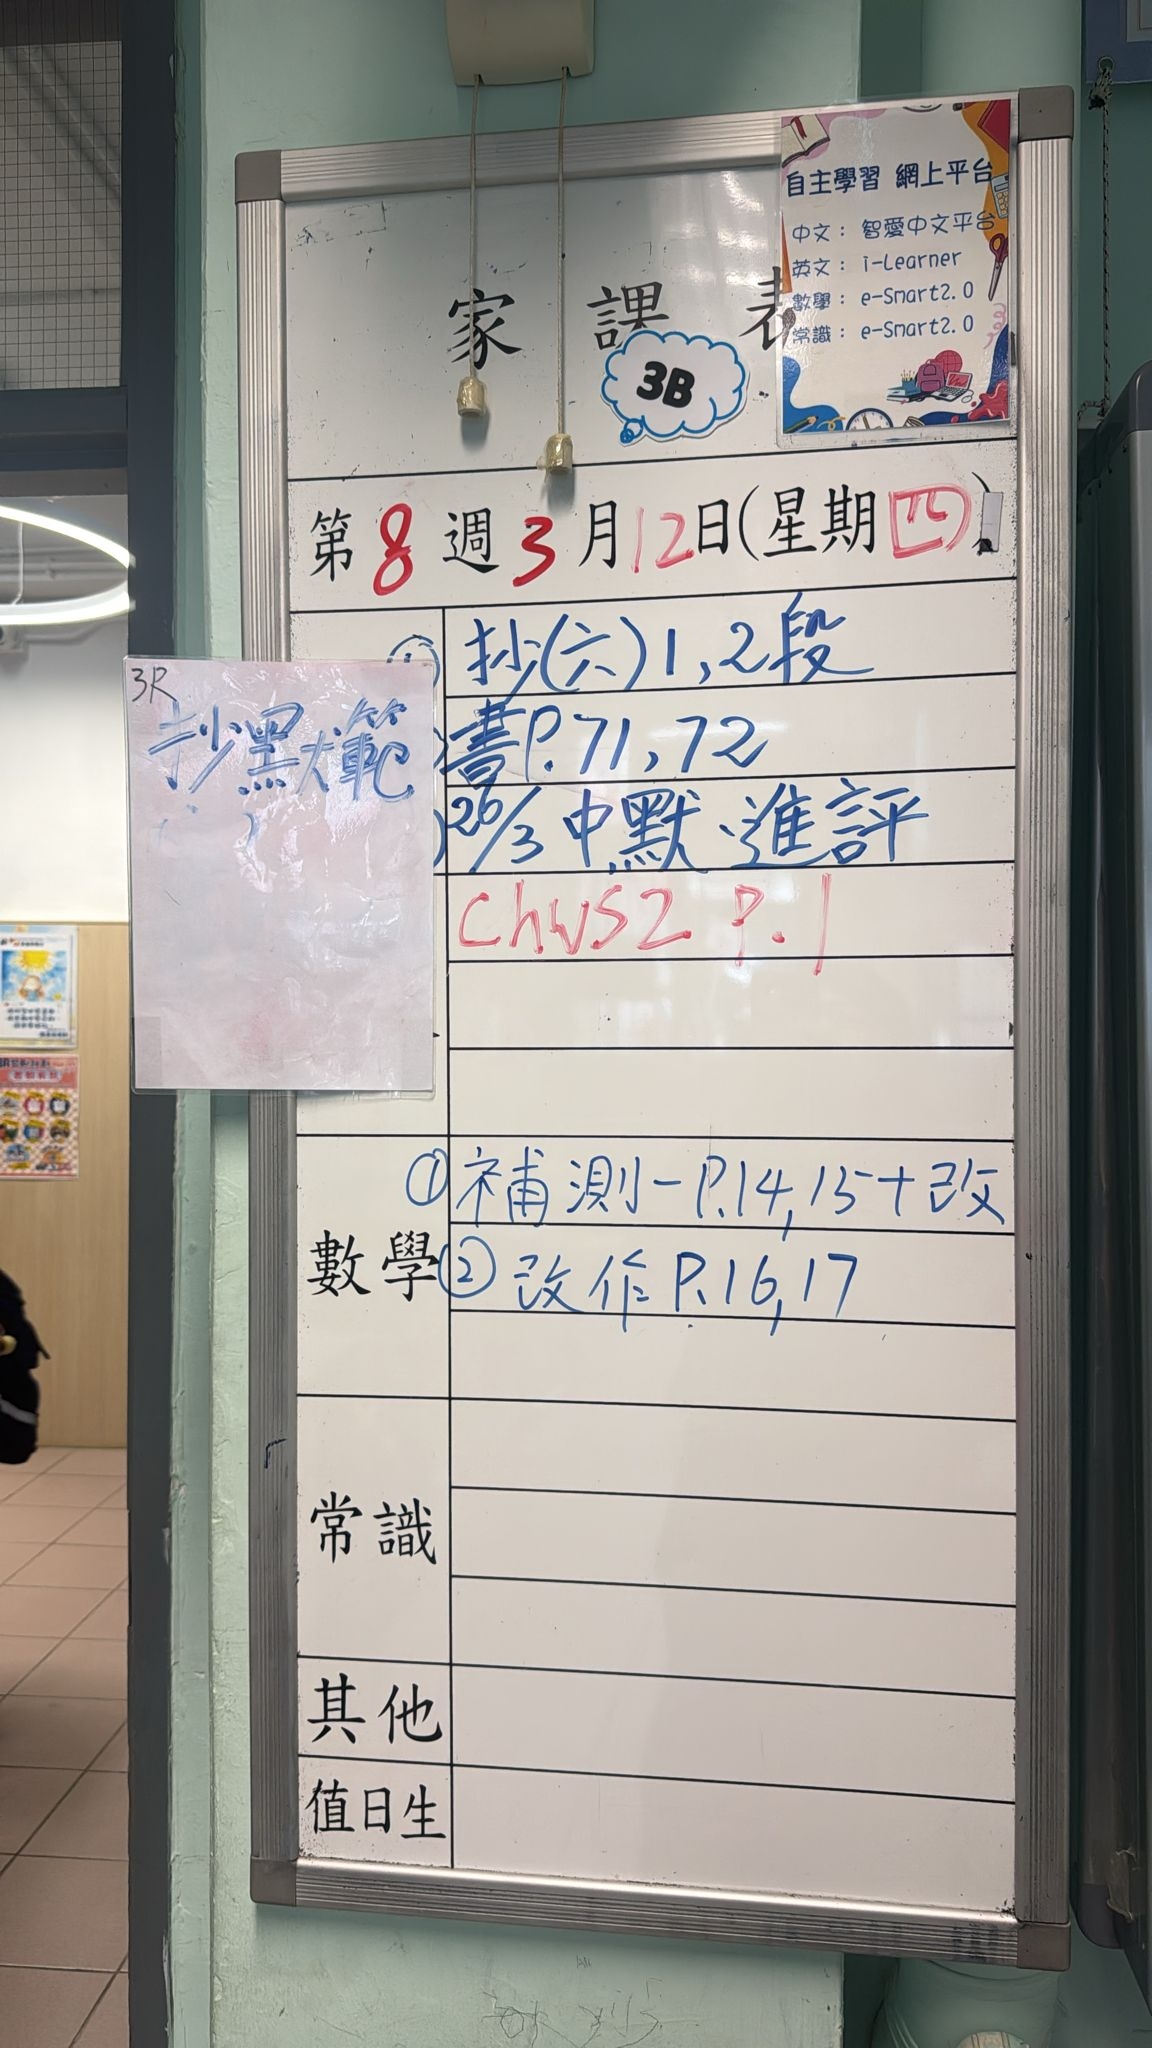 自主學習 網上平台
中文: 智愛中文平台
英文: i-Learner
數學: e-Smart2.0
常識: e-Smart2.0
家 課 表
3B
第 8 週 3 月 12 日(星期四)
① 抄(六)1,2段
書P.71,72
26/3 中默、進評
3R
抄默範
ChWS2 P.1
數學
① 補測一P.14,15+改
② 改作P.16,17
常識
其他
值日生